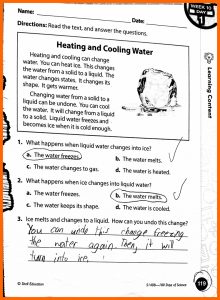 WEEK 10
DAY
1
Name:
Date:
Directions: Read the text, and answer the questions.
Learning Content
Heating and Cooling Water
Heating and cooling can change
water. You can heat ice. This changes
the water from a solid to a liquid. The
water changes states. It changes
its shape. It gets warmer.
Changing water from a solid to a
liquid can be undone. You can cool
the water. It will change from a liquid
to a solid. Liquid water freezes and
becomes ice when it is cold enough.
1. What happens when liquid water changes into ice?
a. The water freezes.
b. The water melts.
c. The water changes to gas.
d. The water is heated.
2. What happens when ice changes into liquid water?
a. The water freezes.
b. The water melts.
c. The water keeps its shape.
d. The water is cooled.
3. Ice melts and changes to a liquid. How can you undo this change?
You can undo this change freezing
the water again. Then, it will
turn into ice.
© Shell Education
119